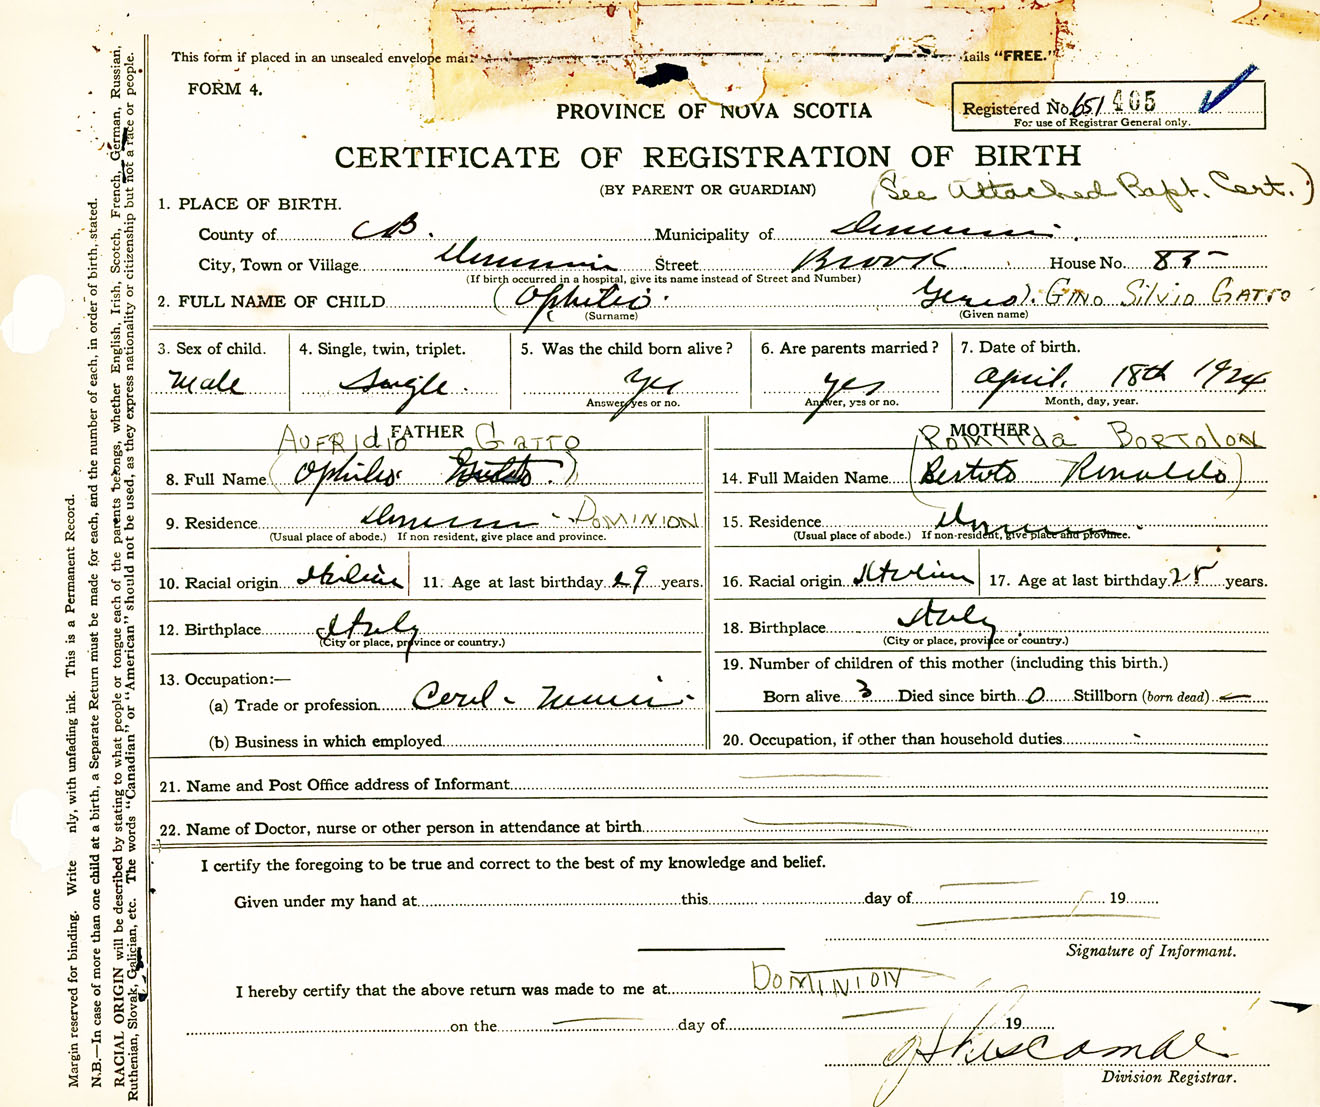 This form if placed in an unsealed envelope mai ails "FREE."
FORM 4.
PROVINCE OF NOVA SCOTIA
Registered No. 651 405
For use of Registrar General only.
CERTIFICATE OF REGISTRATION OF BIRTH
(BY PARENT OR GUARDIAN) (See Attached Bapt. Cert.)
1. PLACE OF BIRTH.
County of C B. Municipality of Dominion
City, Town or Village Dominion Street Brook House No. 85
(If birth occurred in a hospital, give its name instead of Street and Number)
2. FULL NAME OF CHILD (Ophilio. ). GINO SILVIO GATTO
(Surname) (Given name)
3. Sex of child. 4. Single, twin, triplet. 5. Was the child born alive? 6. Are parents married? 7. Date of birth.
Male Single. Yes Yes April 18th 1924
Answer, yes or no. Answer, yes or no. Month, day, year.
FATHER MOTHER
AUFRIDIO GATTO ROMILDA BORTOLON
8. Full Name (Ophilio ) 14. Full Maiden Name (Bertoto Ronaldo)
9. Residence Dominion - DOMINION 15. Residence Dominion
(Usual place of abode.) If non resident, give place and province. (Usual place of abode.) If non-resident, give place and province.
10. Racial origin Italian 11. Age at last birthday 29 years. 16. Racial origin Italian 17. Age at last birthday 25 years.
12. Birthplace Italy 18. Birthplace Italy
(City or place, province or country.) (City or place, province or country.)
19. Number of children of this mother (including this birth.)
13. Occupation:—
(a) Trade or profession Coal - Miner Born alive 3 Died since birth 0 Stillborn (born dead) -
(b) Business in which employed 20. Occupation, if other than household duties -
21. Name and Post Office address of Informant
22. Name of Doctor, nurse or other person in attendance at birth
I certify the foregoing to be true and correct to the best of my knowledge and belief.
Given under my hand at this day of 19
Signature of Informant.
I hereby certify that the above return was made to me at DOMINION
on the day of 19
Division Registrar.
Margin reserved for binding. Write nly, with unfading ink. This is a Permanent Record.
N.B.—In case of more than one child at a birth, a Separate Return must be made for each, and the number of each, in order of birth, stated.
RACIAL ORIGIN will be described by stating to what people or tongue each of the parents belongs, whether English, Irish, Scotch, French, German, Russian,
Ruthenian, Slovak, Galician, etc. The words "Canadian" or "American" should not be used, as they express nationality or citizenship but not a race or people.